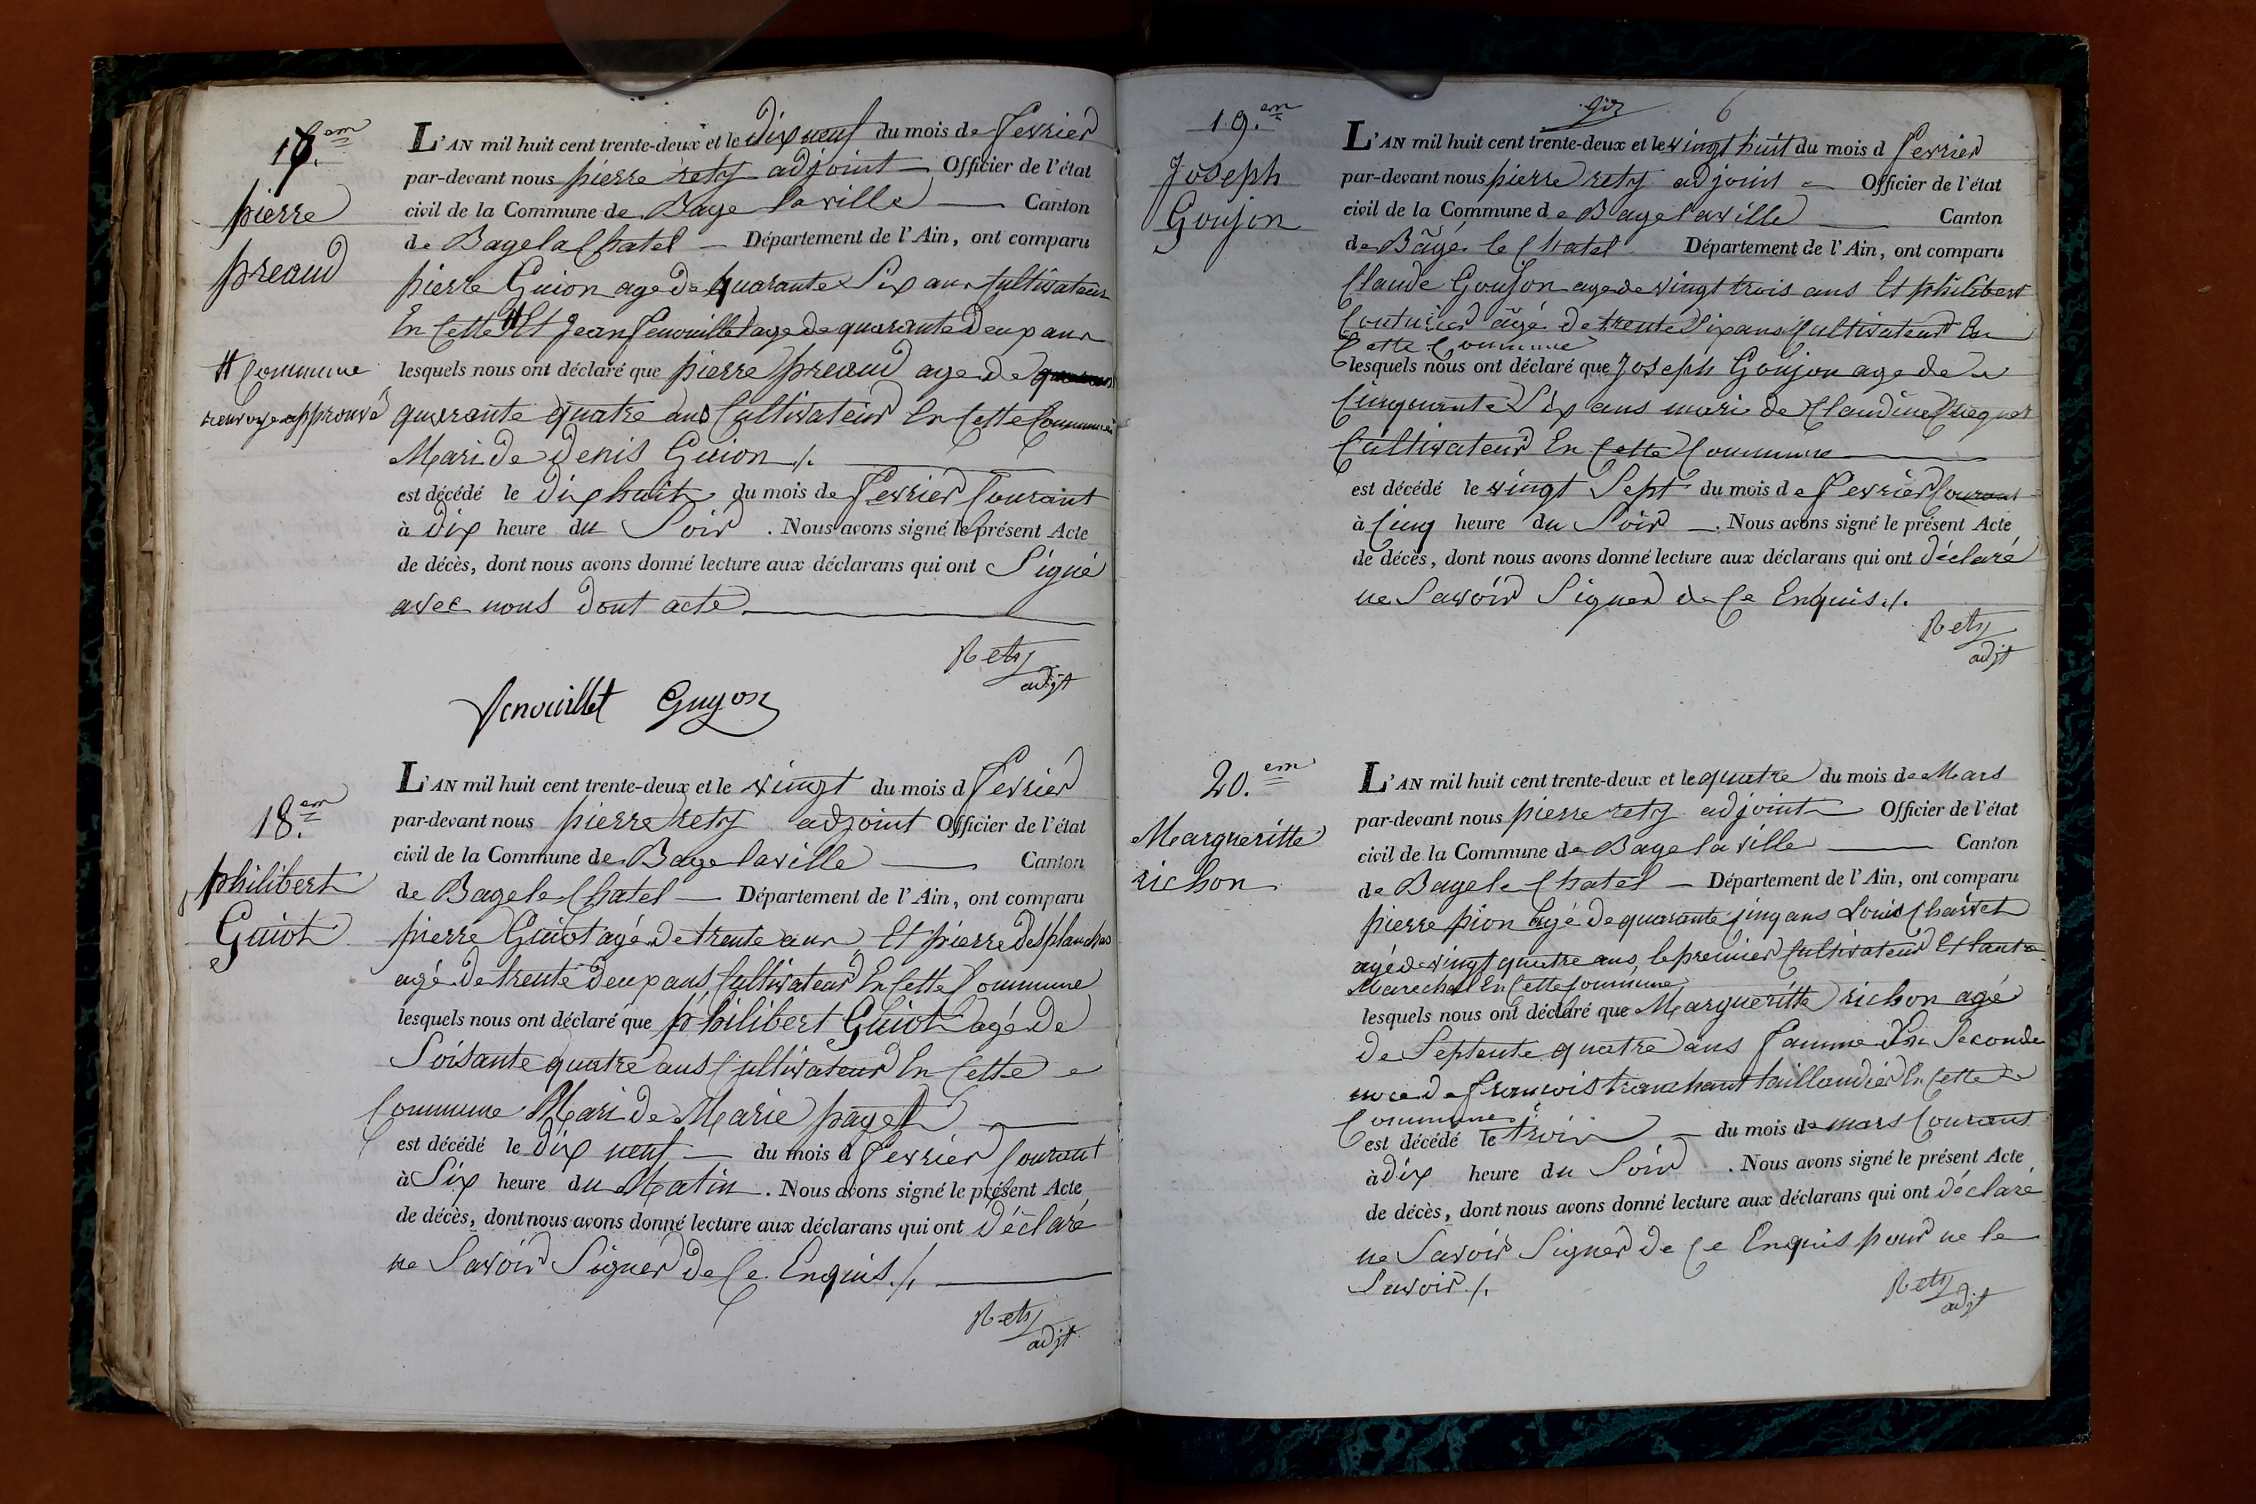 17.em
pierre
preaud
# Commune
renvoye approuvé
L'AN mil huit cent trente-deux et le dix neuf du mois de fevrier
par-devant nous pierre rety adjoint Officier de l'état
civil de la Commune de Bage la ville Canton
de Bage la Chatel Département de l'Ain, ont comparu
pierre Guion age de quarante Six ans Cultivateur
En Cette # Et Jean fenouillet age de quarante deux ans
lesquels nous ont déclaré que pierre preaud age de
quarante quatre ans Cultivateur En Cette Commune
Mari de Denis Guion ./.
est décédé le dix huit du mois de fevrier Courant
à dix heure du Soir. Nous avons signé le présent Acte
de décès, dont nous avons donné lecture aux déclarans qui ont Signé
avec nous dont acte
Rety
adjt
fenouillet Guyon
18.em
philibert
Guiot
L'AN mil huit cent trente-deux et le vingt du mois d fevrier
par-devant nous pierre rety adjoint Officier de l'état
civil de la Commune de Bage laville Canton
de Bage le Chatel Département de l'Ain, ont comparu
pierre Guiot agé de trente ans Et pierre desplanches
agé de trente deux ans Cultivateur En Cette Commune
lesquels nous ont déclaré que philibert Guiot agé de
Soisante quatre ans Cultivateur En Cette
Commune Mari de Marie paget
est décédé le dix neuf du mois d fevrier Courant
à Six heure du Matin. Nous avons signé le présent Acte
de décès, dont nous avons donné lecture aux déclarans qui ont déclaré
ne Savoir Signer de Ce Enquis ./.
Rety
adjt
6
19.em
Joseph
Goujon
L'AN mil huit cent trente-deux et le vingt huit du mois d fevrier
par-devant nous pierre rety adjoint Officier de l'état
civil de la Commune de Bage laville Canton
de Bagé le Chatel Département de l'Ain, ont comparu
Claude Goujon age de vingt trois ans Et philibert
Couturier âgé de trente Six ans Cultivateur En
Cette Commune
lesquels nous ont déclaré que Joseph Goujon age de
Cinquante Six ans mari de Claudine
Cultivateur En Cette Commune
est décédé le vingt Sept du mois de fevrier Courant
à Cinq heure du Soir. Nous avons signé le présent Acte
de décès, dont nous avons donné lecture aux déclarans qui ont déclaré
ne Savoir Signer de Ce Enquis ./.
Rety
adjt
20.em
Margueritte
richon
L'AN mil huit cent trente-deux et le quatre du mois de Mars
par-devant nous pierre rety adjoint Officier de l'état
civil de la Commune de Bage la ville Canton
de Bage le Chatel Département de l'Ain, ont comparu
pierre pion agé de quarante jinq ans Louis Charvet
agé de vingt quatre ans, le premier Cultivateur Et lautre
Maréchal En Cette Commune
lesquels nous ont déclaré que Margueritte richon agé
de Septente quatre ans famme En Seconde
noce de francois tranchant taillandier En Cette
Commune
est décédé le trois du mois de mars Courant
à dix heure du Soir. Nous avons signé le présent Acte
de décès, dont nous avons donné lecture aux déclarans qui ont déclaré
ne Savoir Signer de Ce Enquis pour ne le
Savoir ./.
Rety
adjt